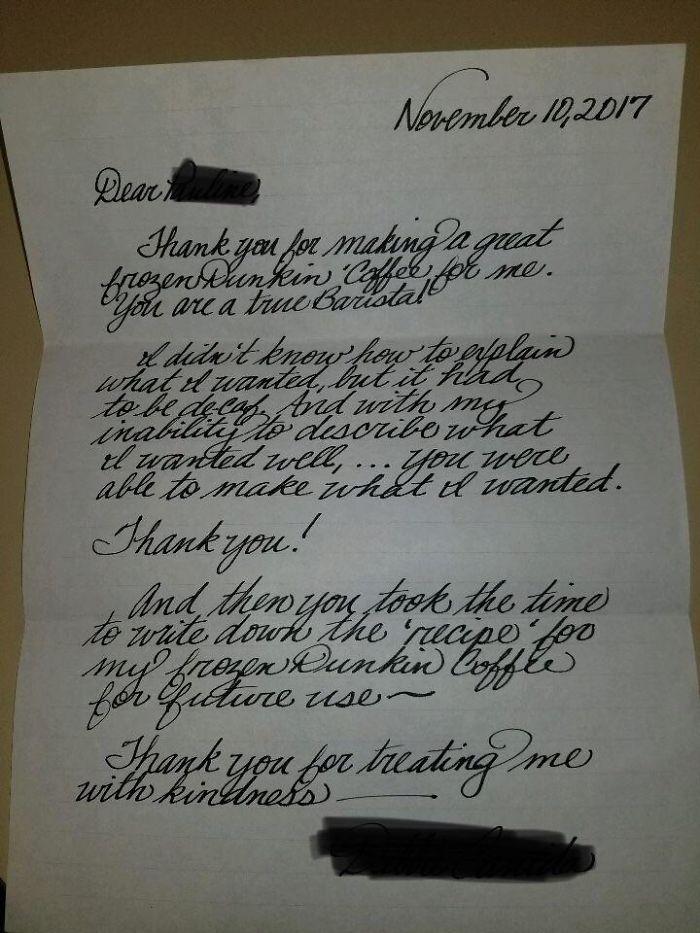 November 10, 2017
Dear
Thank you for making a great
frozen Dunkin 'Coffee' for me.
You are a true Barista!
I didn't know how to explain
what I wanted, but it had
to be decaf. And with my
inability to describe what
I wanted well, ... you were
able to make what I wanted.
Thank you!
And then you took the time
to write down the 'recipe' for
my frozen Dunkin Coffee
for future use ~
Thank you for treating me
with kindness —